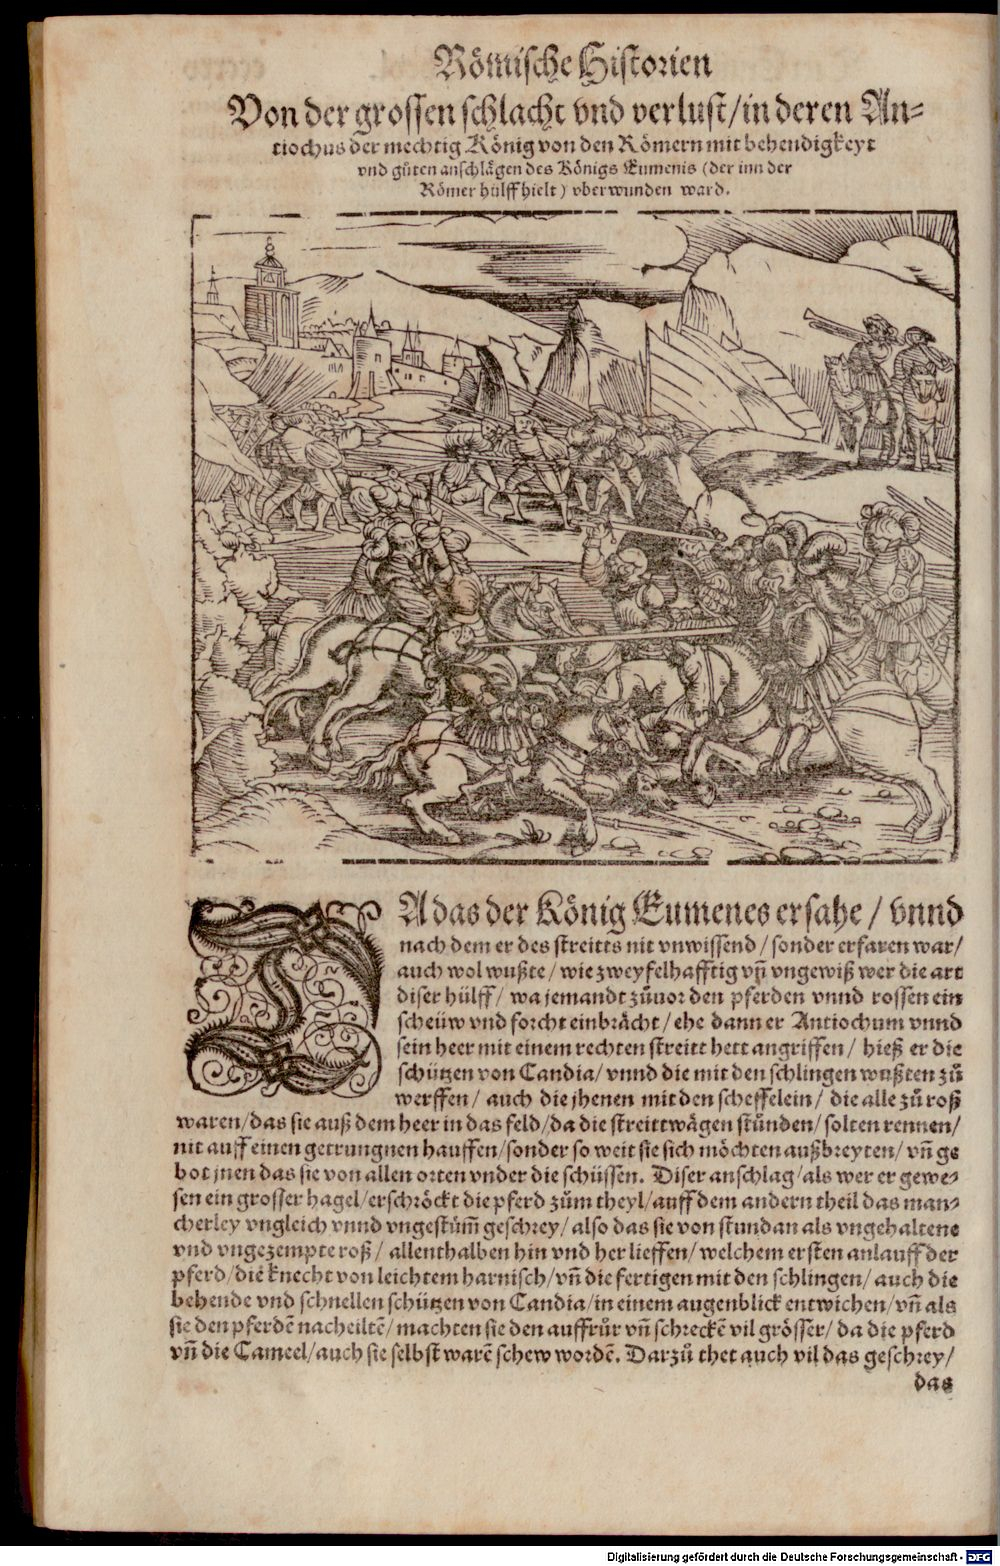 Römische Historien
Von der grossen schlacht vnd verlust/in deren An⸗
tiochus der mechtig König von den Römern mit behendigkeyt
vnd gůten anschlägen des Königs Eumenis (der inn der
Römer hülff hielt) vberwunden ward.
DA das der König Eumenes ersahe / vnnd
nach dem er des streitts nit vnwissend / sonder erfaren war/
auch wol wußte / wie zweyfelhafftig vñ vngewiß wer die art
diser hülff / wa jemandt zůuor den pferden vnnd rossen ein
scheüw vnd forcht einbrächt / ehe dann er Antiochum vnnd
sein heer mit einem rechten streitt hett angriffen / hieß er die
schützen von Candia/ vnnd die mit den schlingen wußten zů
werffen / auch die jhenen mit den scheffelein / die alle zů roß
waren/das sie auß dem heer in das feld/da die streittwägen stůnden/ solten rennen/
nit auff einen getrungnen hauffen/sonder so weit sie sich möchten außbreyten/ vñ ge
bot jnen das sie von allen orten vnder die schüssen. Diser anschlag/als wer er gewe⸗
sen ein grosser hagel/erschröckt die pferd zům theyl/auff dem andern theil das man⸗
cherley vngleich vnnd vngestům̃ geschrey/ also das sie von stundan als vngehaltene
vnd vngezempte roß / allenthalben hin vnd her lieffen/ welchem ersten anlauff der
pferd/die knecht von leichtem harnisch/vñ die fertigen mit den schlingen/ auch die
behende vnd schnellen schützen von Candia/in einem augenblick entwichen/vñ als
sie den pferdẽ nacheiltẽ/ machten sie den auffrůr vñ schreckẽ vil grösser/ da die pferd
vñ die Cameel/auch sie selbst warẽ schew wordẽ. Darzů thet auch vil das geschrey/
das
Digitalisierung gefördert durch die Deutsche Forschungsgemeinschaft - DFG